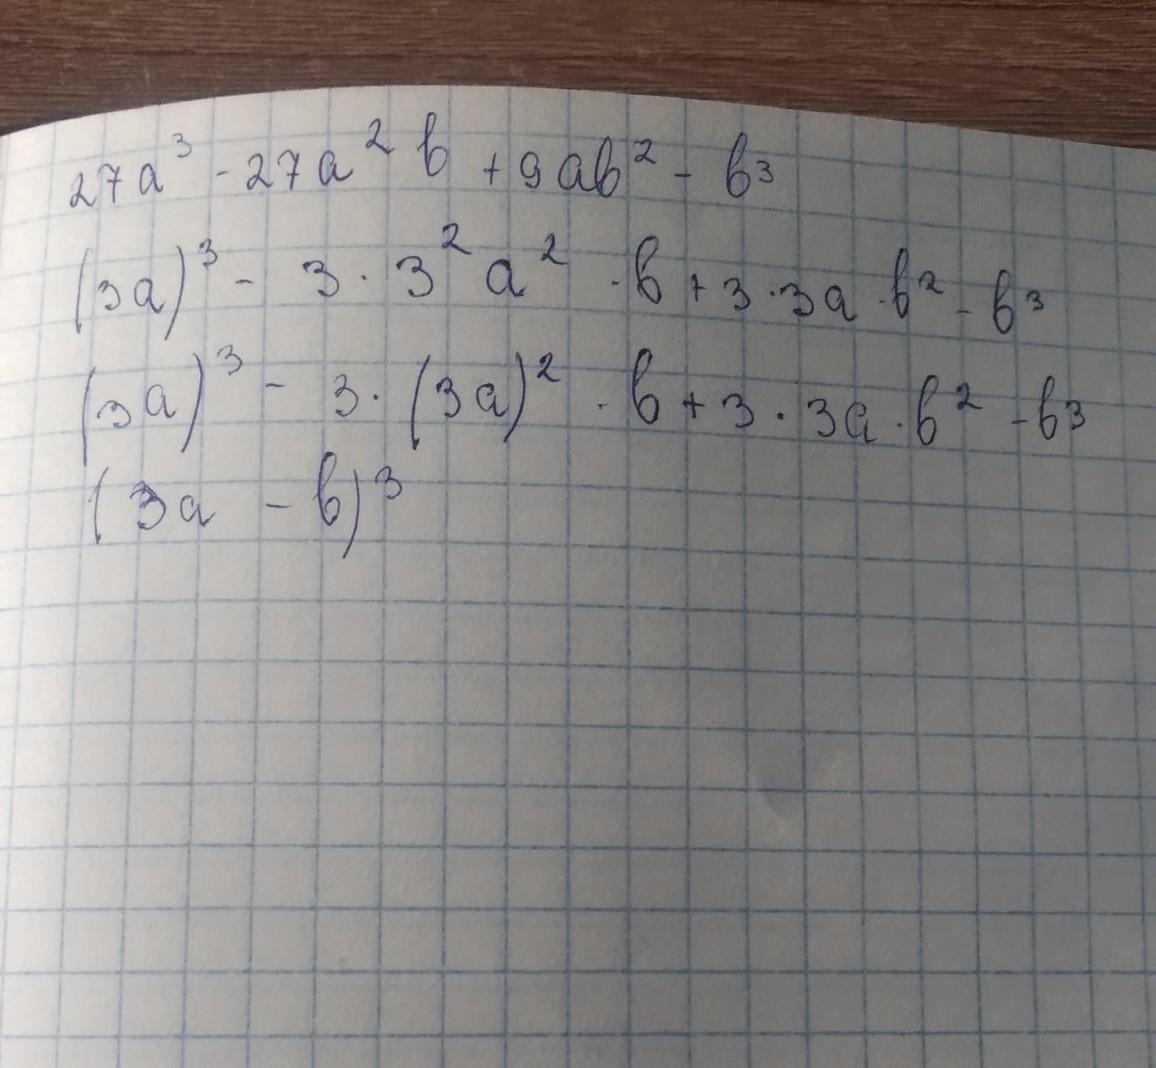 27a³ - 27a² b + 9ab² - b³
(3a)³ - 3 · 3² a² · b + 3 · 3a · b² - b³
(3a)³ - 3 · (3a)² · b + 3 · 3a · b² - b³
(3a - b)³